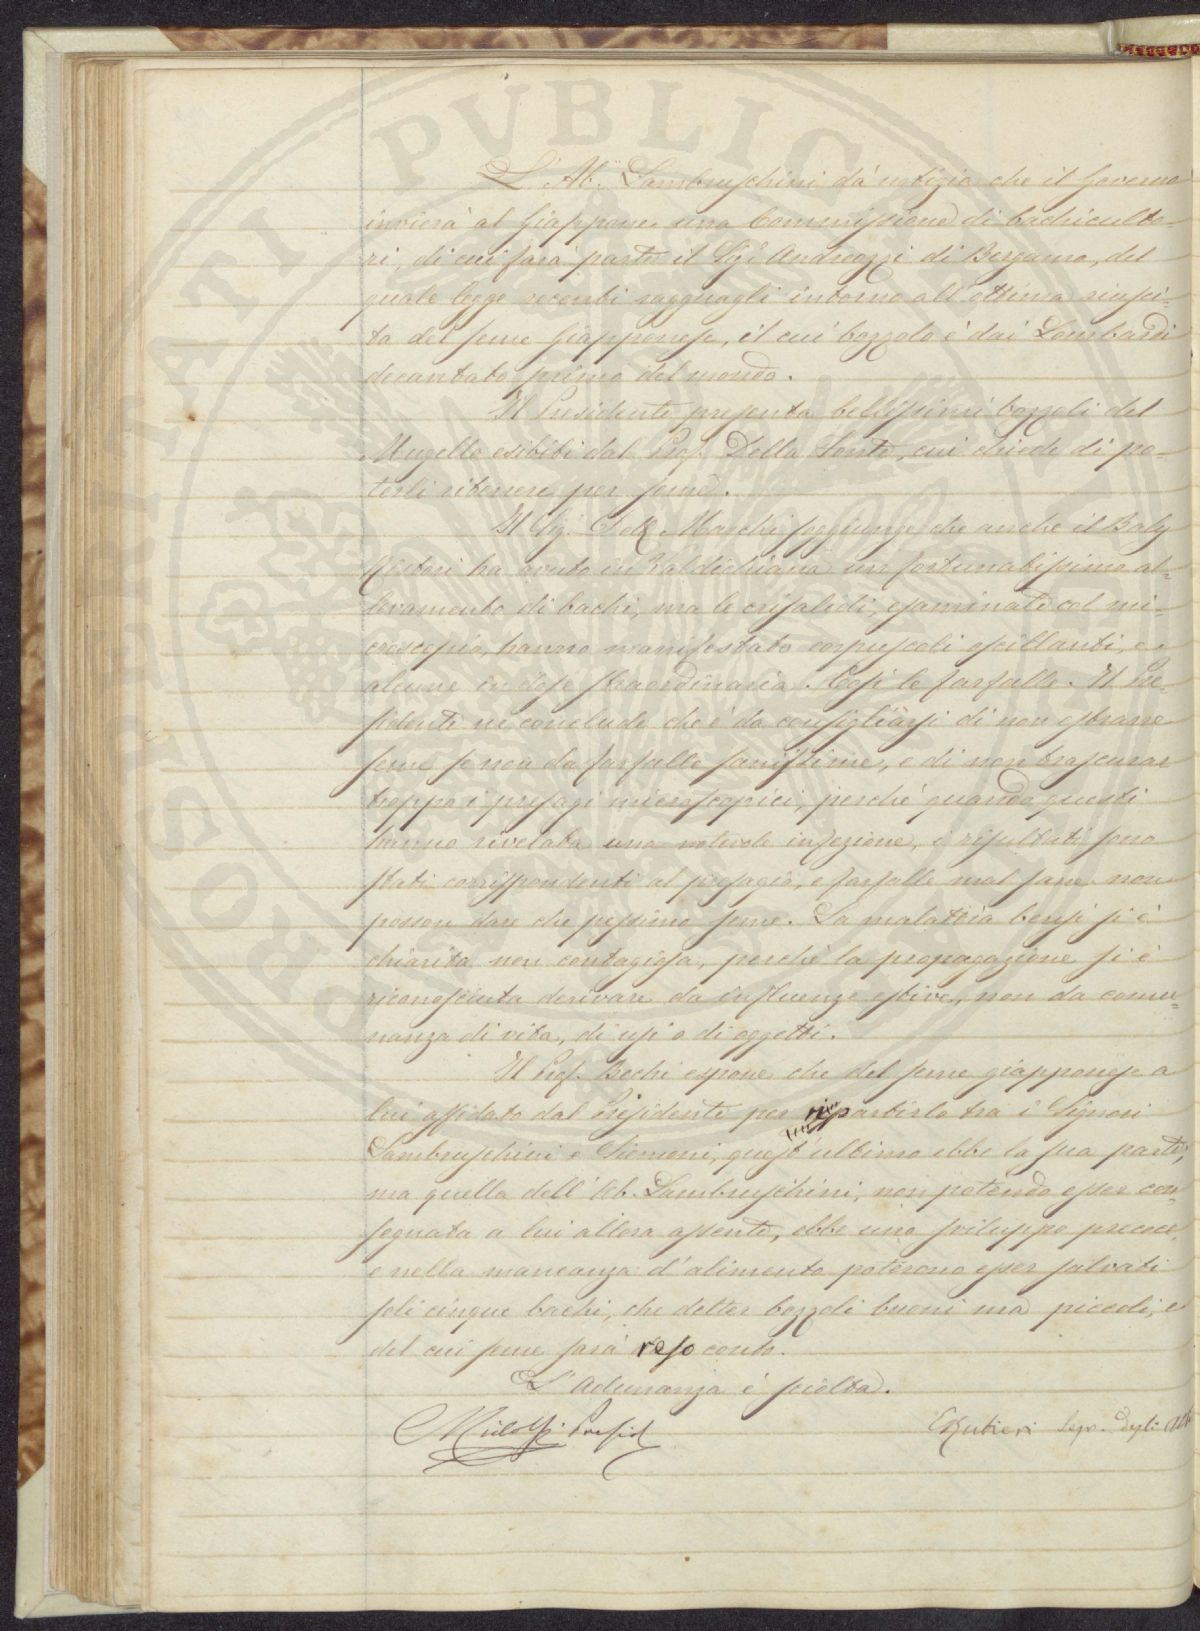 L'Ab. Lambruschini dà notizia che il Governo
invierà al Giappone una Commissione di bachiculto-
ri, di cui farà parte il Sig. Andreozzi di Bergamo, del
quale legge recenti ragguagli intorno all'ottima riusci-
ta del seme Giapponese, il cui bozzolo è dai Lombardi
decantato primo del mondo.
Il Presidente presenta bellissimi bozzoli del
Mugello esibiti dal Prof. Della Fonte, cui chiede di po-
terli ritenere per seme.
Il Sig. Dott. Marchi soggiunge che anche il Balj
Ristori ha avuto in Valdichiana un fortunatissimo al-
levamento di bachi, ma le crisalidi, esaminate col mi-
croscopio, hanno manifestato corpuscoli oscillanti, e
alcune in dose straordinaria. Così le farfalle. Il Pre-
sidente ne conclude che è da consigliarsi di non estrarre
seme se non da farfalle sanissime, e di non trascurar
troppo i presagi microscopici, perché quando questi
hanno rivelata una notevole infezione, i risultati sono
stati corrispondenti al presagio, e farfalle mal sane non
posson dare che pessimo seme. La malattia bensì si è
chiarita non contagiosa, perchè la propagazione si è
riconosciuta derivare da influenze estive, non da comu-
nanza di vita, di usi o di oggetti.
Il Prof. Bechi espone che del seme giapponese a
lui affidato dal Presidente per ripartirlo tra i Signori
Lambruschini e Siemoni, quest'ultimo ebbe la sua parte;
ma quella dell'Ab. Lambruschini, non potendo esser con-
segnata a lui allora assente, ebbe uno sviluppo precoce,
e nella mancanza d'alimento poterono esser salvati
soli cinque bachi, che detter bozzoli buoni ma piccoli, e
del cui seme sarà reso conto.
L'Adunanza è sciolta.
Ridolfi Presid
Rutieri Segr. degli Atti
PUBLIC